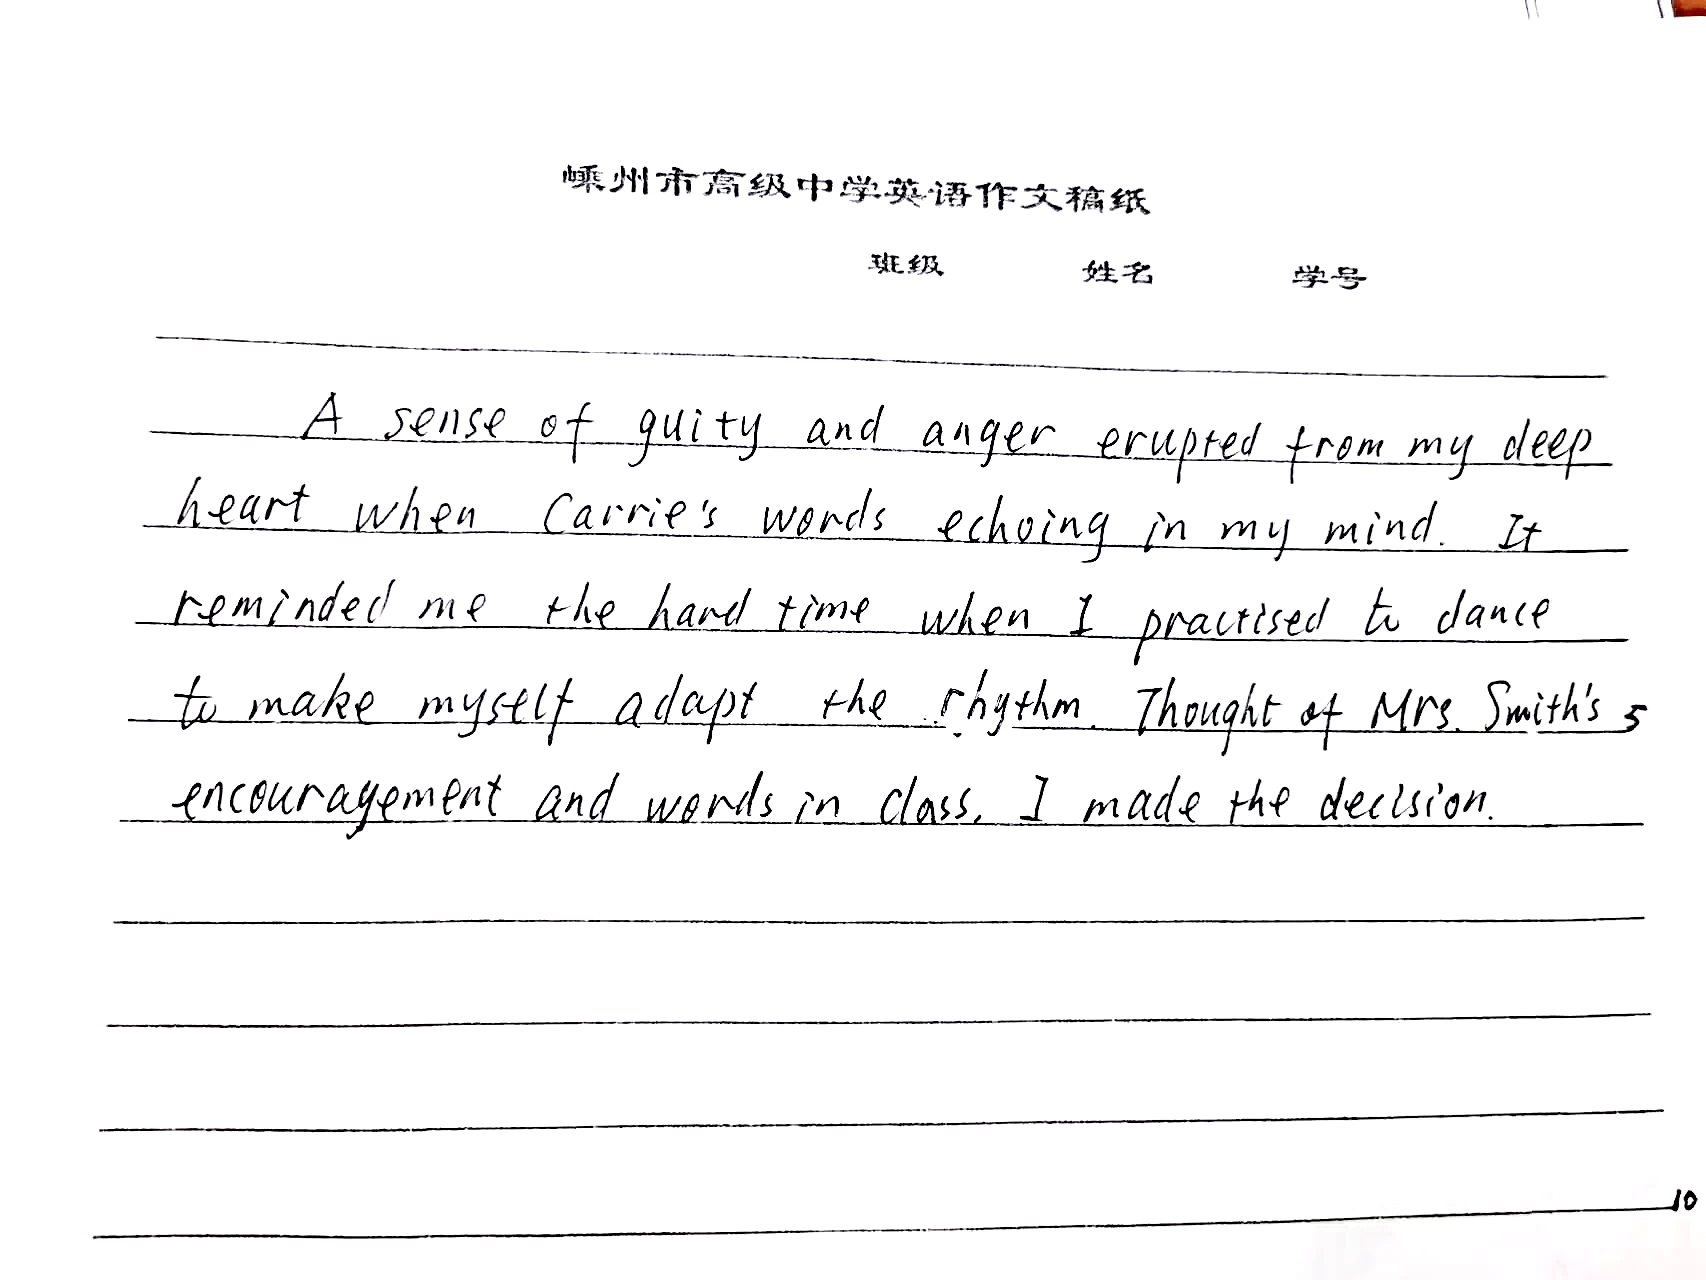 嵊州市高级中学英语作文稿纸
班级 姓名 学号
A sense of guity and anger erupted from my deep
heart when Carrie's words echoing in my mind. It
reminded me the hard time when I practised to dance
to make myself adapt the rhythm. Thought of Mrs. Smith's 5
encouragement and words in class, I made the decision.
10